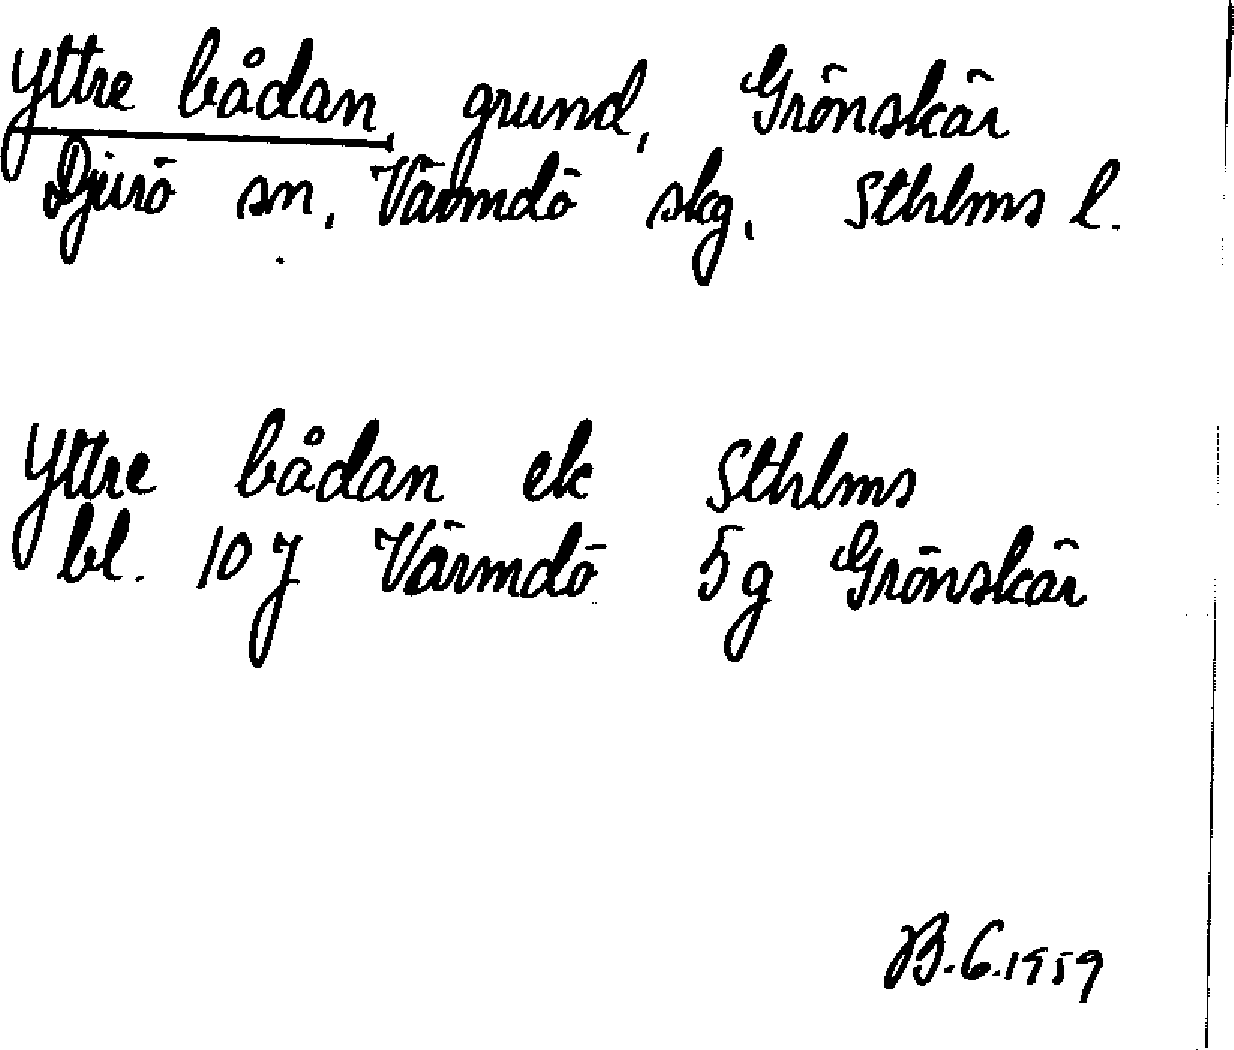 Yttre bådan, grund, Grönskär
Djurö sn, Värmdö skg, Sthlms l.
Yttre bådan ek Sthlms
bl. 10 J Värmdö 5 g Grönskär
B.G. 1959